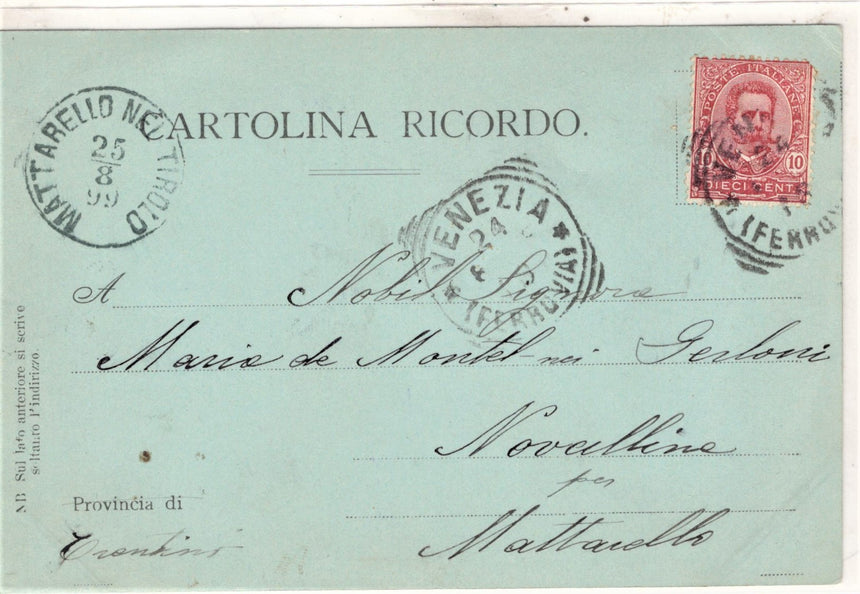 CARTOLINA RICORDO.
MATTARELLO NEL TIROLO
25
8
99
POSTE ITALIANE
10 10
DIECI CENT
VENEZIA
24
(FERROVIA)
VEN
24
(FERROV
A Nobil. Signora
Maria de Montel nei Gerloni
Novalline
per
Mattarello
Provincia di
Trentino
NB Sul lato anteriore si scrive
soltanto l'indirizzo.